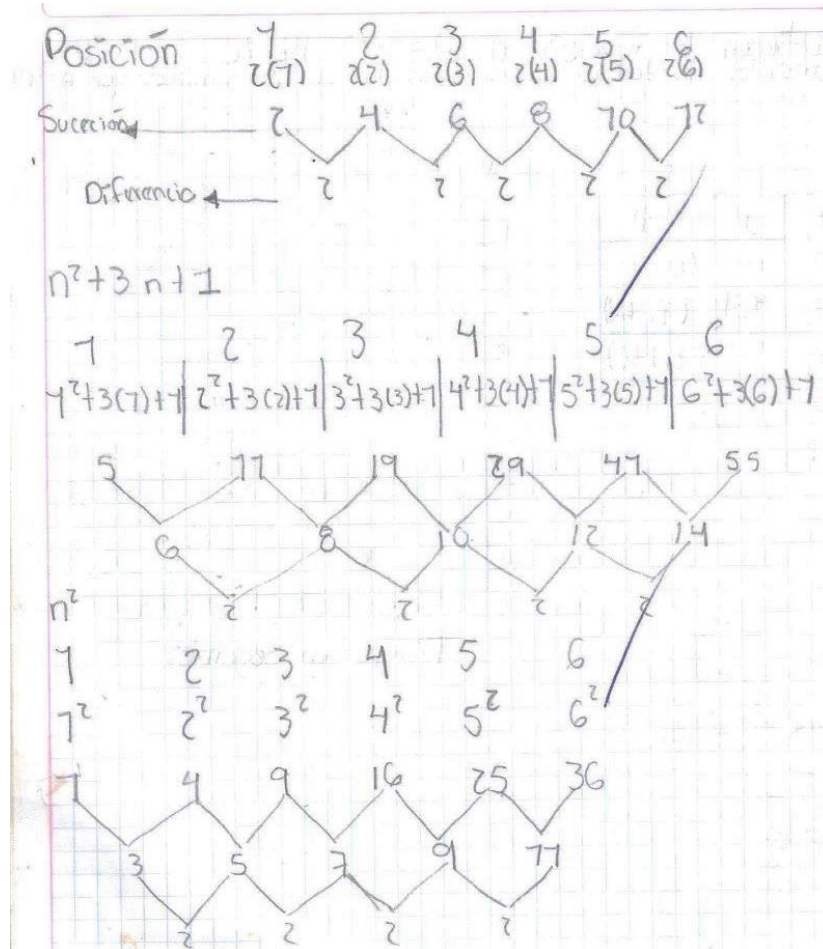 Posición 1 2 3 4 5 6
2(1) 2(2) 2(3) 2(4) 2(5) 2(6)
Suceción 2 4 6 8 10 12
2 2 2 2 2
Diferencia
n²+3n+1
1 2 3 4 5 6
1²+3(1)+1 | 2²+3(2)+1 | 3²+3(3)+1 | 4²+3(4)+1 | 5²+3(5)+1 | 6²+3(6)+1
5 11 19 29 41 55
6 8 10 12 14
2 2 2 2
n²
1 2 3 4 5 6
1² 2² 3² 4² 5² 6²
1 4 9 16 25 36
3 5 7 9 11
2 2 2 2